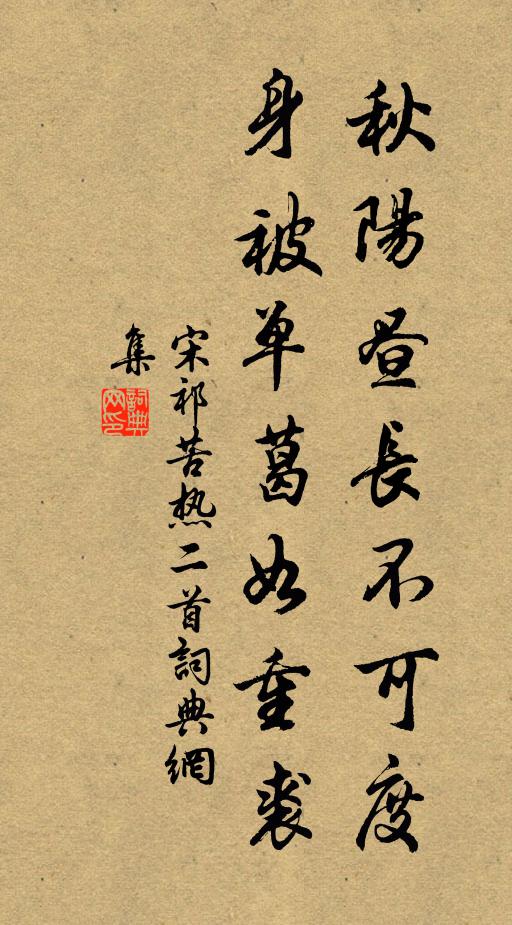 秋陽昼長不可度
身被单葛如重裘
宋祁苦热二首詞典網
集
詞典網印